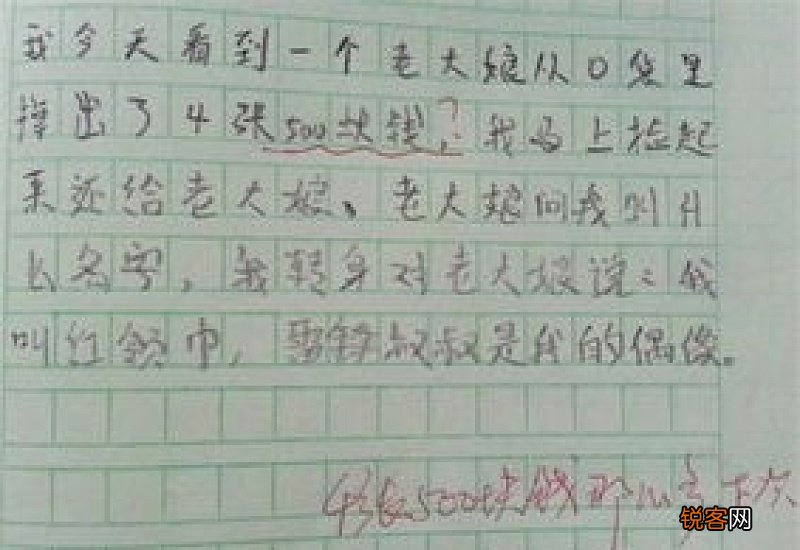 我今天看到一个老大娘从0袋里
掉出了4张500块钱，?我马上捡起
来还给老大娘、老大娘问我叫什
么名字，我转身对老大娘说：我
叫红领巾，雷锋叔叔是我的偶像。
4张500块钱那么多下次
锐客网